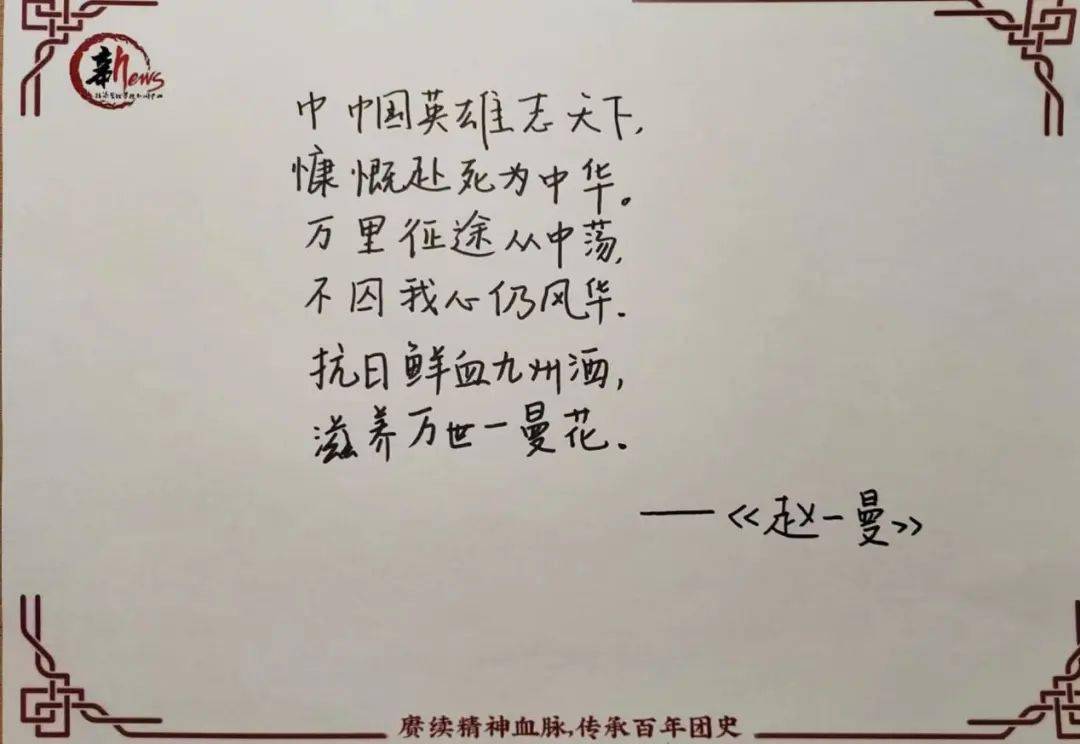 新news
巾帼英雄志天下,
慷慨赴死为中华。
万里征途从中荡,
不囚我心仍风华.
抗日鲜血九州洒,
滋养万世一曼花.
——《赵一曼》
赓续精神血脉,传承百年团史